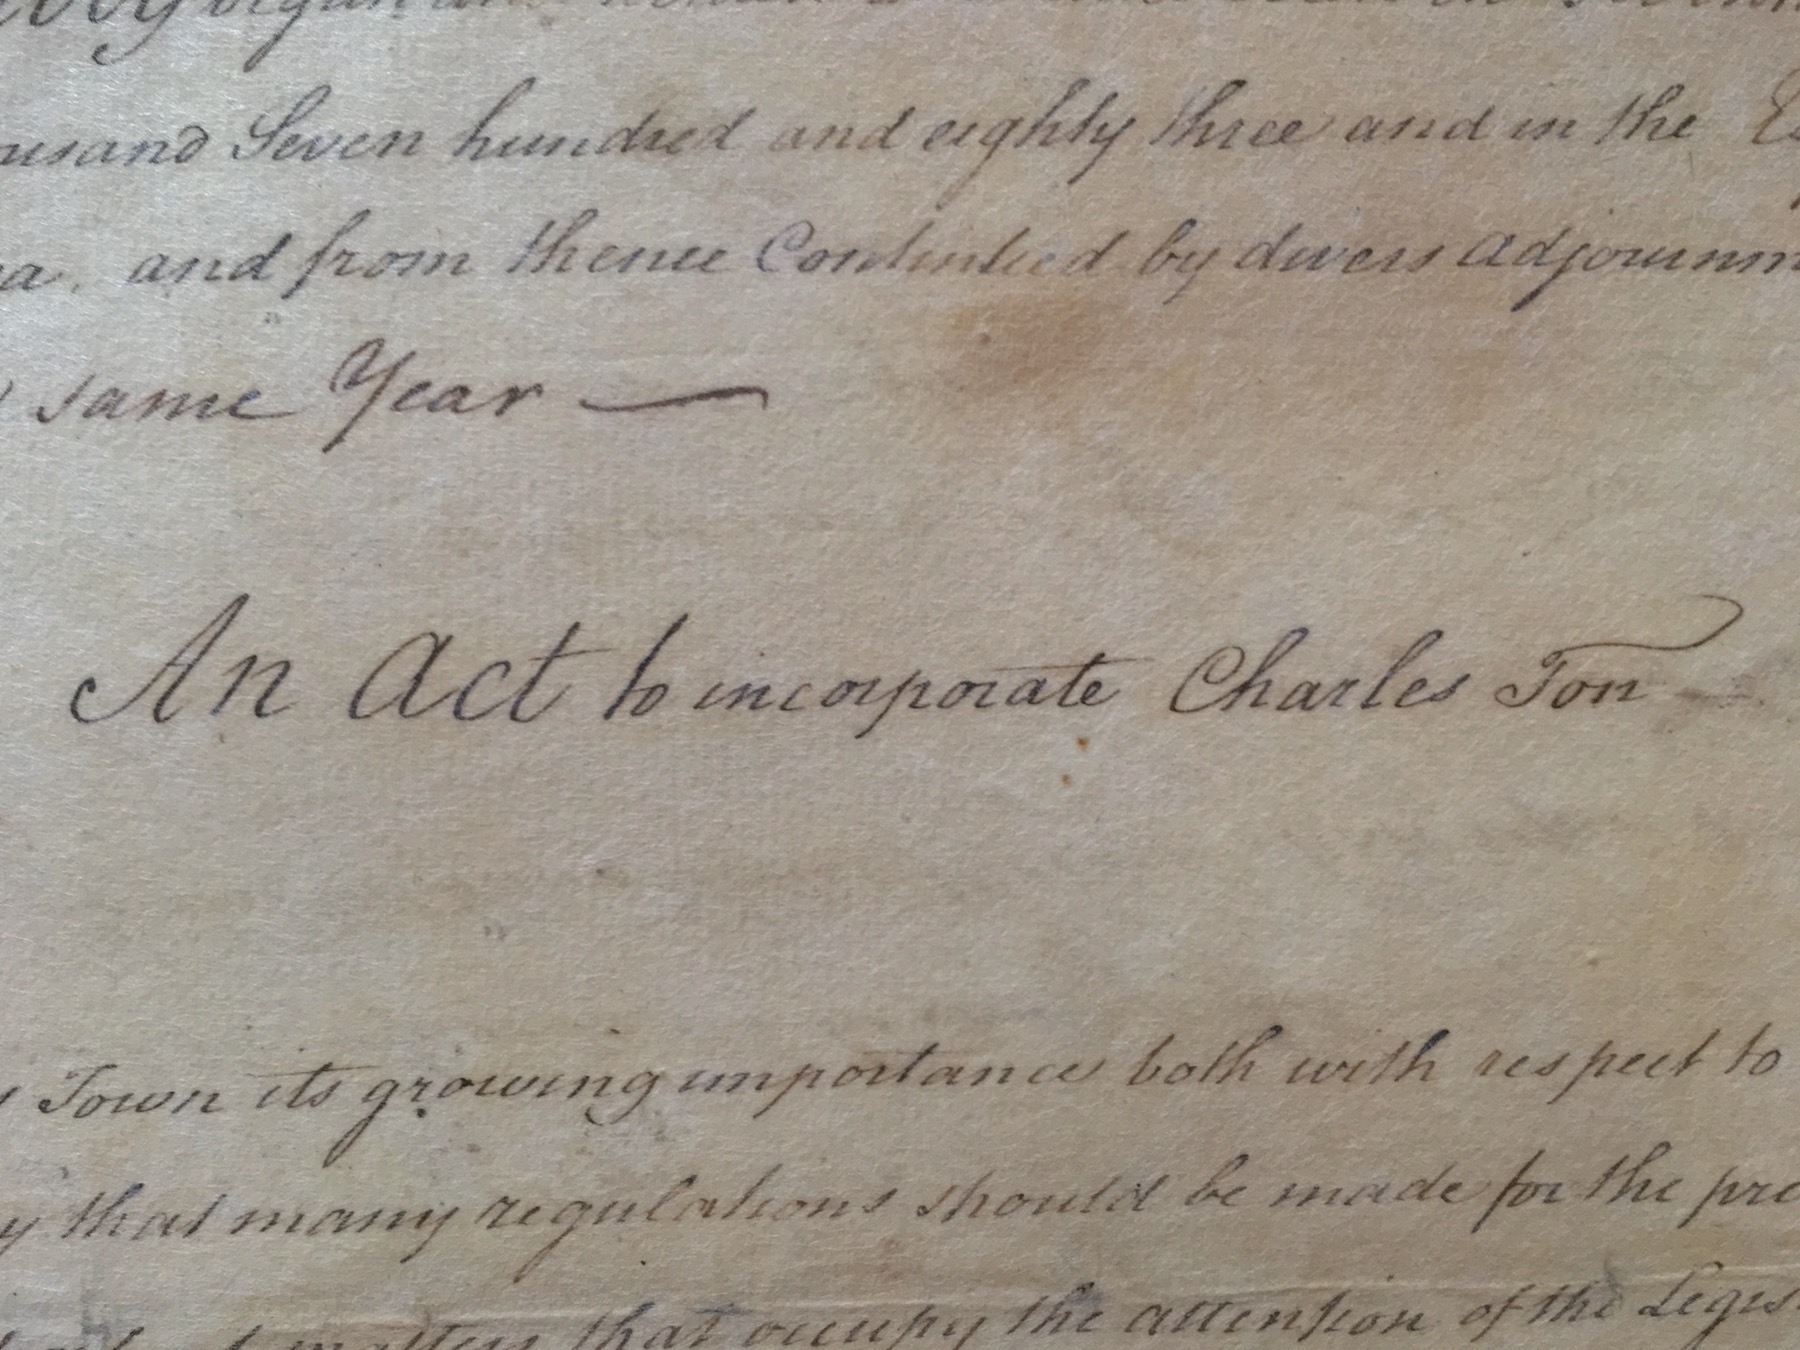 began and
ousand Seven hundred and eighty three and in the
and from thence Continued by divers adjournm
same Year
An Act to incorporate Charles Ton
Town its growing importance both with respect to
y that many regulations should be made for the pro
matters that occupy the attention of the Legis